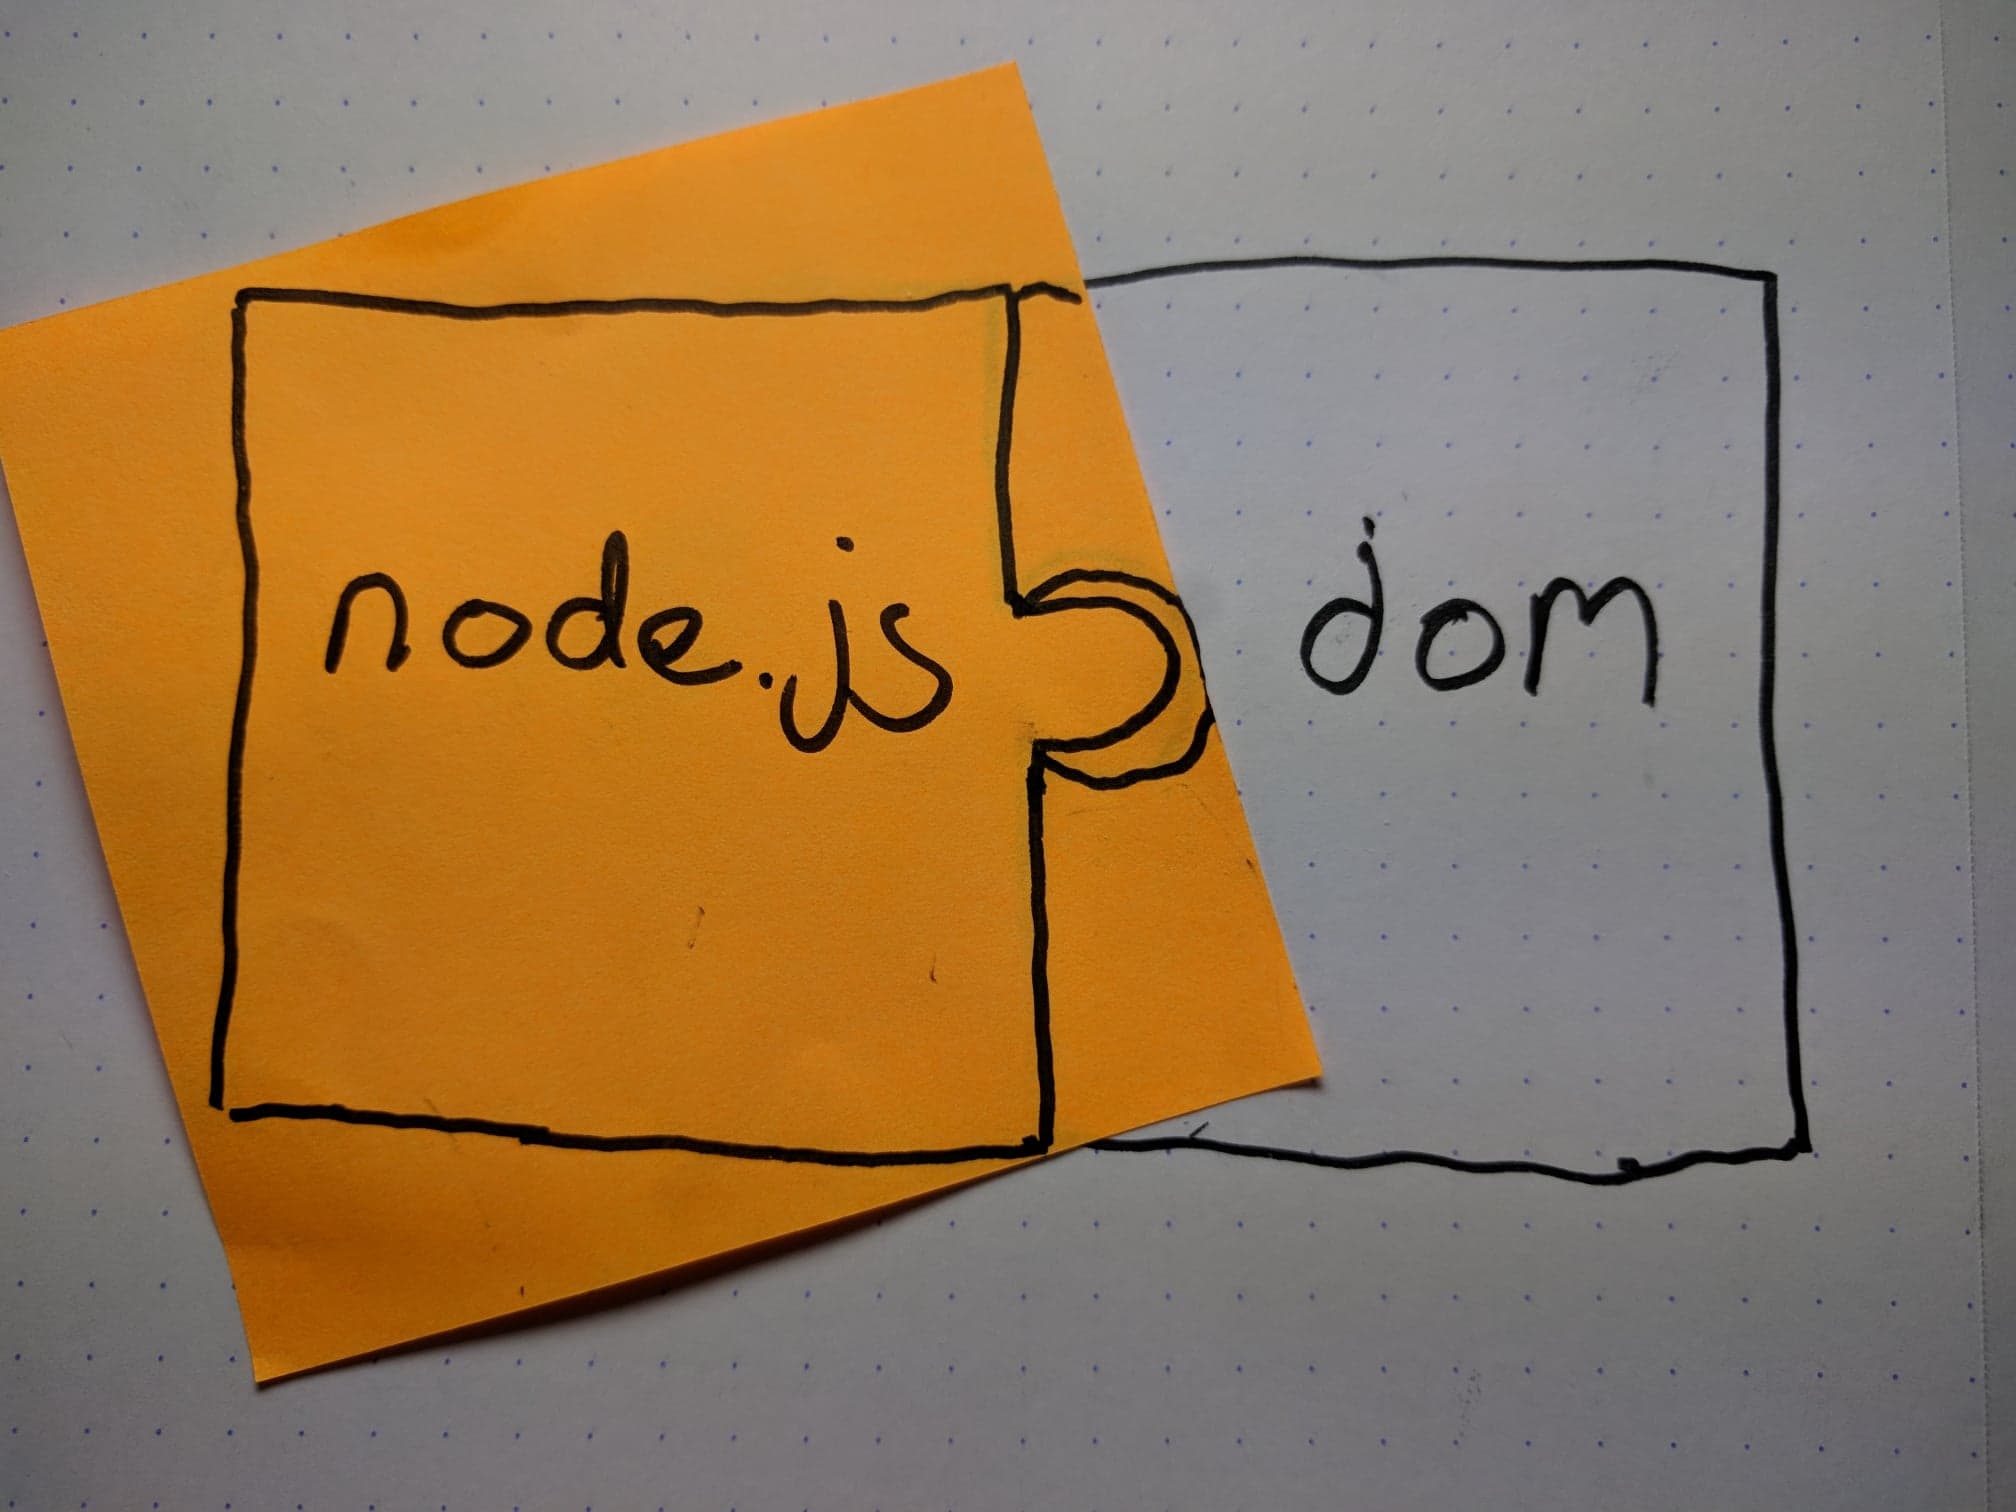 node.js dom